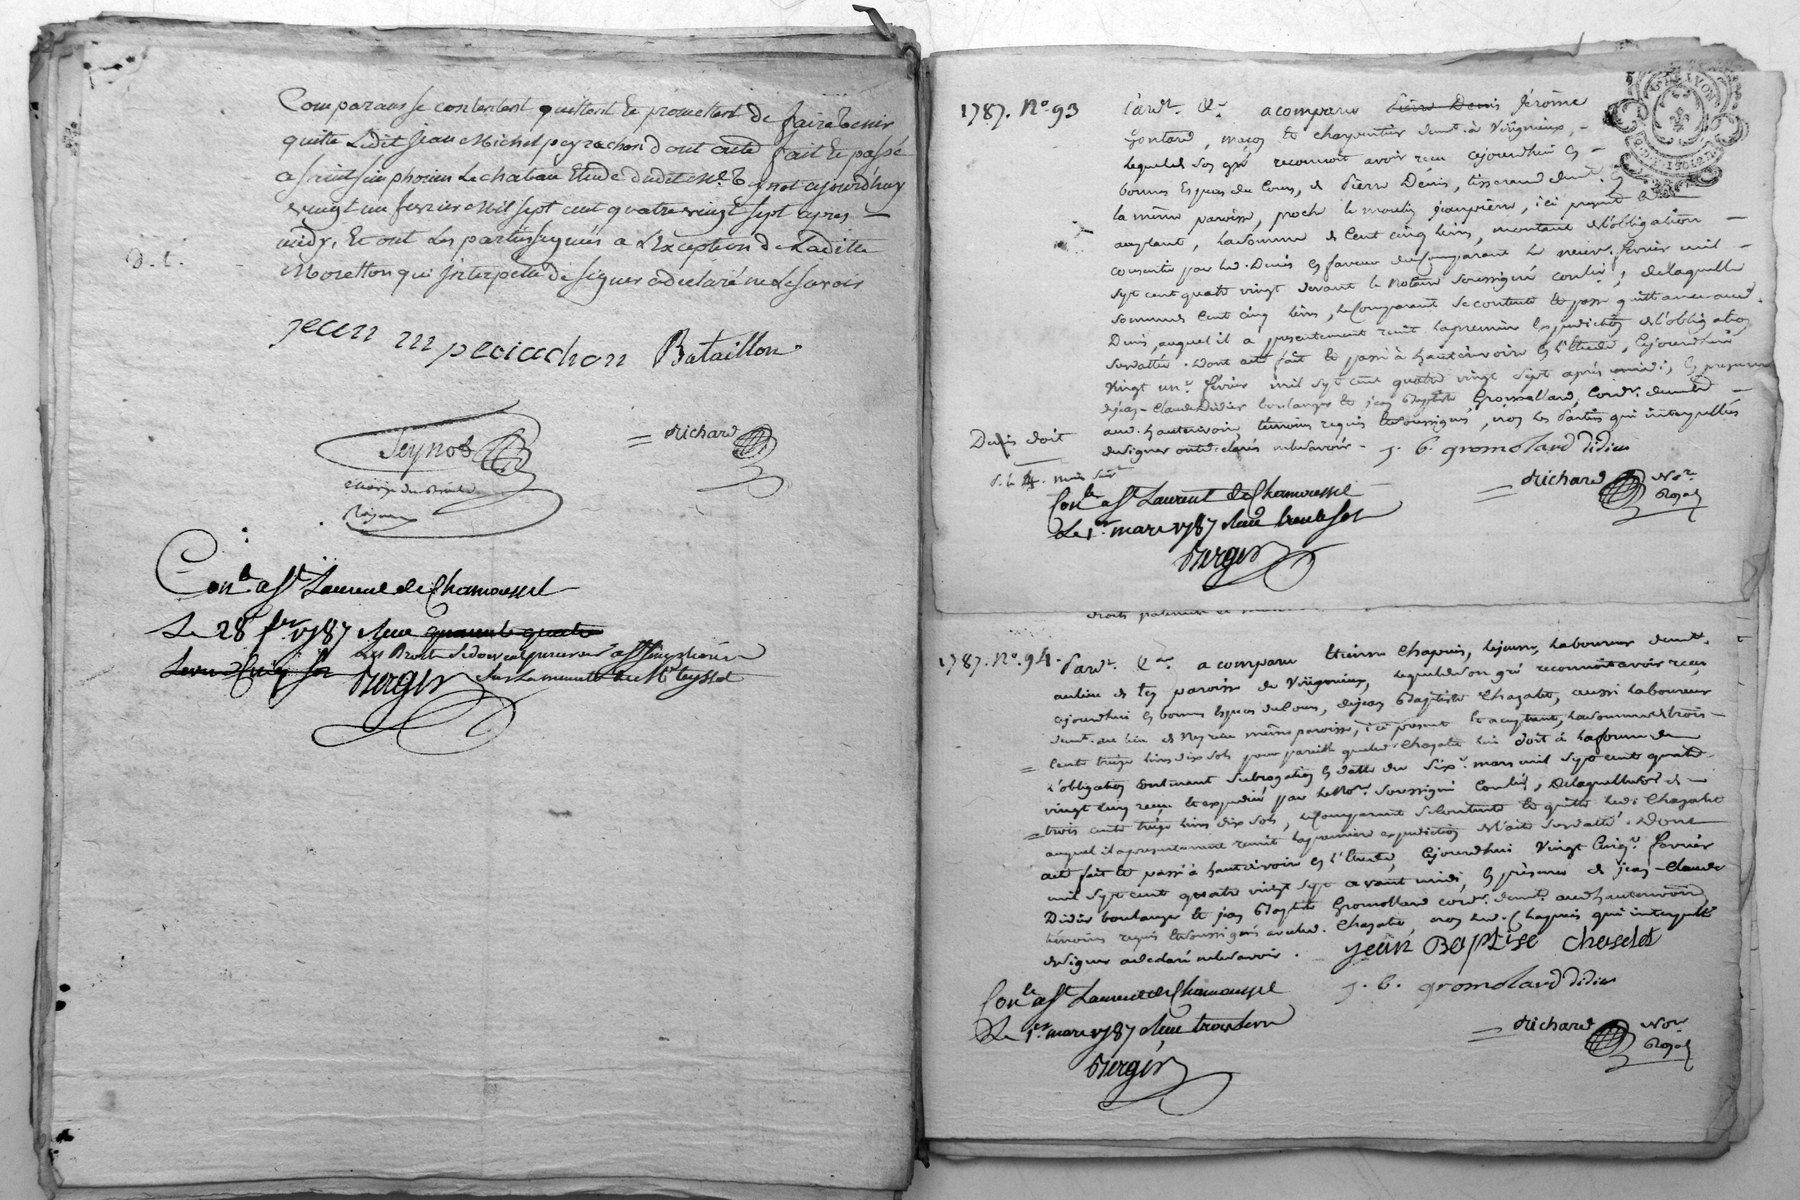 Comparans se contentent quittent et promettent de faire tenir
quitte Ledit Jean Michel peyrachon dont acte fait et passé
a saint simphorien Le chateau Etude dudit Me not ajourd'huy
vingt un fevrier Mil sept cent quatre vingt sept apres
midy, Et ont Les parties signés a L'Exception de Ladite
Moretton qui Interpellé de signer a declaré ne Le savoir
D. C.
jean m peiiachon Bataillon
Seynod
Richard
Conlé à St Laurent de Chamousset
Le 28 fer 1787 Reçu quarante quatre
Les Droits
sur La minute de Me
Bergér
1787. No. 93
Pardt &a. a comparu Pierre Denis Jérôme
Gontard, maçon et charpentier demt. à Virigneux,
lequel de son gré reconnoit avoir reçu cejourdhui en
bonnes Espèces du Cours, de Pierre Dénis, tisserand demt. en
la même paroisse, proche le moulin, ici présent et
acceptant, la somme de Cent cinq livres, montant de l'obligation
consentie par led. Denis en faveur du Comparant le neuf février mil
sept cent quatre vingt devant le Notaire soussigné contlé, de laquelle
somme de Cent cinq livres, le Comparant se contente et passe quittance aud.
Denis, auquel il a présentement remit la première Expédition de l'obligation
susdattée. Dont acte fait et passé à hauterivoire en l'Etude, Cejourdhui
Vingt un. février mil sept cent quatre vingt sept après midi, En présence
de jean-Claude Didier boulanger et jean Baptiste Gromollard, cordr. demt.
aud. hauterivoire, témoins requis et soussignés, non les Parties qui interpellées
de signer ont déclaré ne le savoir. j. b. gromolard didier
Denis doit
Richard Nore Royal
Conlé à St Laurent de Chamousset
Le 1er mars 1787 Reçu trente sols
Bergér
1787. No. 94.
Pardt. &a. a comparu Etienne Chapuis, le jeune, laboureur demt.
au lieu de paroisse de Virigneux, lequel de son gré reconnoit avoir reçu
cejourdhui en bonnes Espèces du Cours, de jean Baptiste Chazalet, aussi laboureur
demt. au lieu de même paroisse, ici présent et acceptant, la somme de trois
Cents treize livres dix sols pour pareille que led. Chazalet lui doit à la forme de
l'obligation contenant subrogation en datte du Six mars mil sept cent quatre
vingt cinq reçue et expédiée par le Nore. soussigné contlé, de laquelle somme de
trois cents treize livres dix sols, le Comparant se contente et quitte led. Chazalet
auquel il a présentement remit la première expédition de l'acte susdatté. Dont
acte fait et passé à hauterivoire en l'Etude, Cejourdhui Vingt Cinq février
mil sept cent quatre vingt sept avant midi, en présence de jean-Claude
Didier boulanger et jean Baptiste Gromollard cordr. demt. aud. hauterivoire,
témoins requis et soussignés avec led. Chazalet, non led. Chapuis qui interpellé
de signer a déclaré ne le savoir.
jean Baptise Chaselet
j. b. gromolard didier
Richard Nore Royal
Conlé à St Laurent de Chamousset
Le 1er mars 1787 Reçu trois livres
Bergér